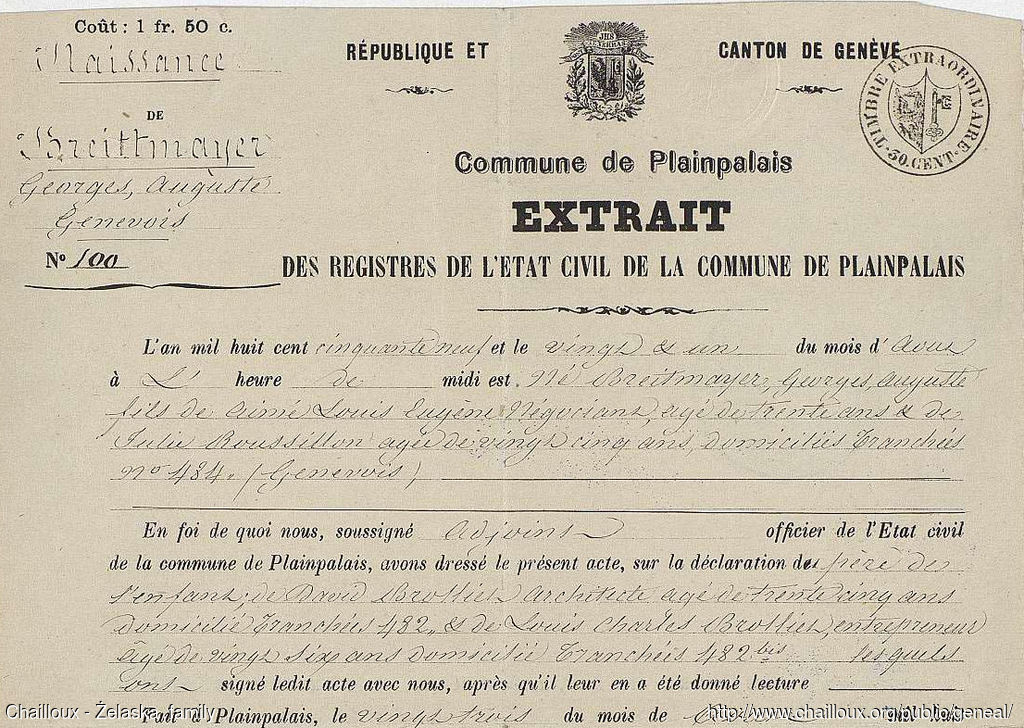 Coût : 1 fr. 50 c.
Naissance
DE
Breittmayer
Georges, Auguste
Genevois
Nº 100
RÉPUBLIQUE ET CANTON DE GENÈVE
TIMBRE EXTRAORDINAIRE
30. CENT.
Commune de Plainpalais
EXTRAIT
DES REGISTRES DE L'ETAT CIVIL DE LA COMMUNE DE PLAINPALAIS
L'an mil huit cent cinquante neuf et le vingt & un du mois d' Aout
à L' heure de midi est. Né Breitmayer, Georges, Auguste
fils de Aimé Louis Eugène Négociant, agé de trente ans & de
Julie Roussillon agée de vingt cinq ans, domiciliés Tranchées
Nº 484. (Genevois)
En foi de quoi nous, soussigné Adjoint officier de l'Etat civil
de la commune de Plainpalais, avons dressé le présent acte, sur la déclaration du père de
l'enfant, de David Brolliet Architecte agé de trente cinq ans
domicilié Tranchées 482, & de Louis Charles Brolliet, entrepreneur
Agé de vingt six ans domicilié Tranchées 482 bis lesquels
ont signé ledit acte avec nous, après qu'il leur en a été donné lecture
Fait à Plainpalais, le vingt trois du mois de
Chailloux - Żelaska family
http://www.chailloux.org/public/geneal/